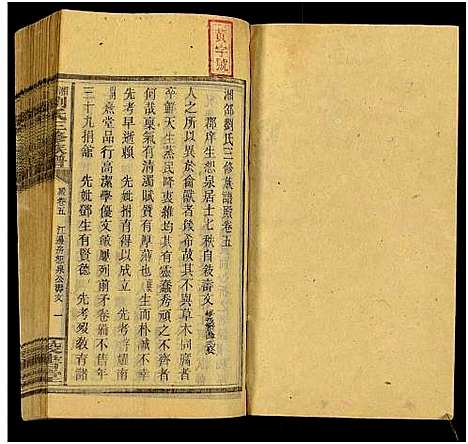 黃字號
湘邵劉氏三修族譜殿卷五
郡庠生想泉居士七秩自敘壽文
人之所以異於禽獸者幾希故其不與草木同腐者
鮮天生蒸民降衷維均其有靈蠢秀頑之不齊
何哉稟氣有清濁賦質有厚薄也生而朴誠不幸
先考早逝賴 先妣捐有得以成立 先考
堂品行高潔學優文
三十九捐館 先妣鄧生有賢德 先考歿教育諸
湘 劉氏三修族譜
殿卷五 江邊房想泉公壽文 一